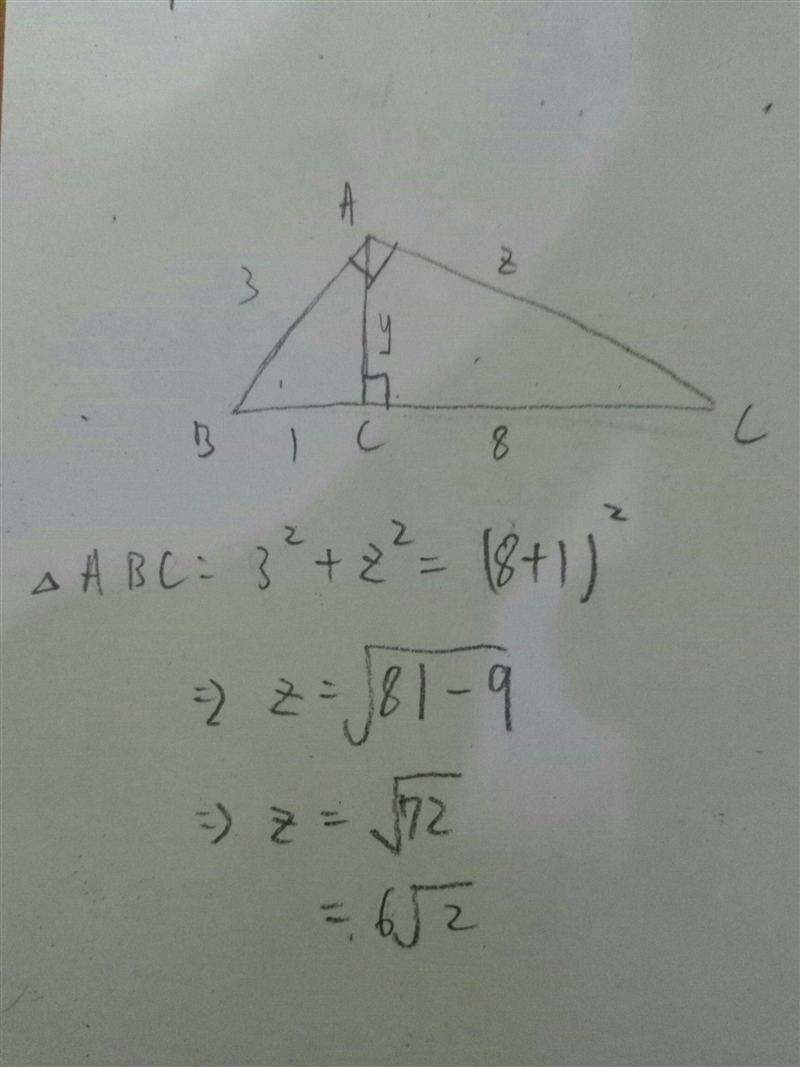 A
3
z
y
B
1
C
8
C
△ABC: 3² + z² = (8+1)²
⇒ z = √81-9
⇒ z = √72
= 6√2